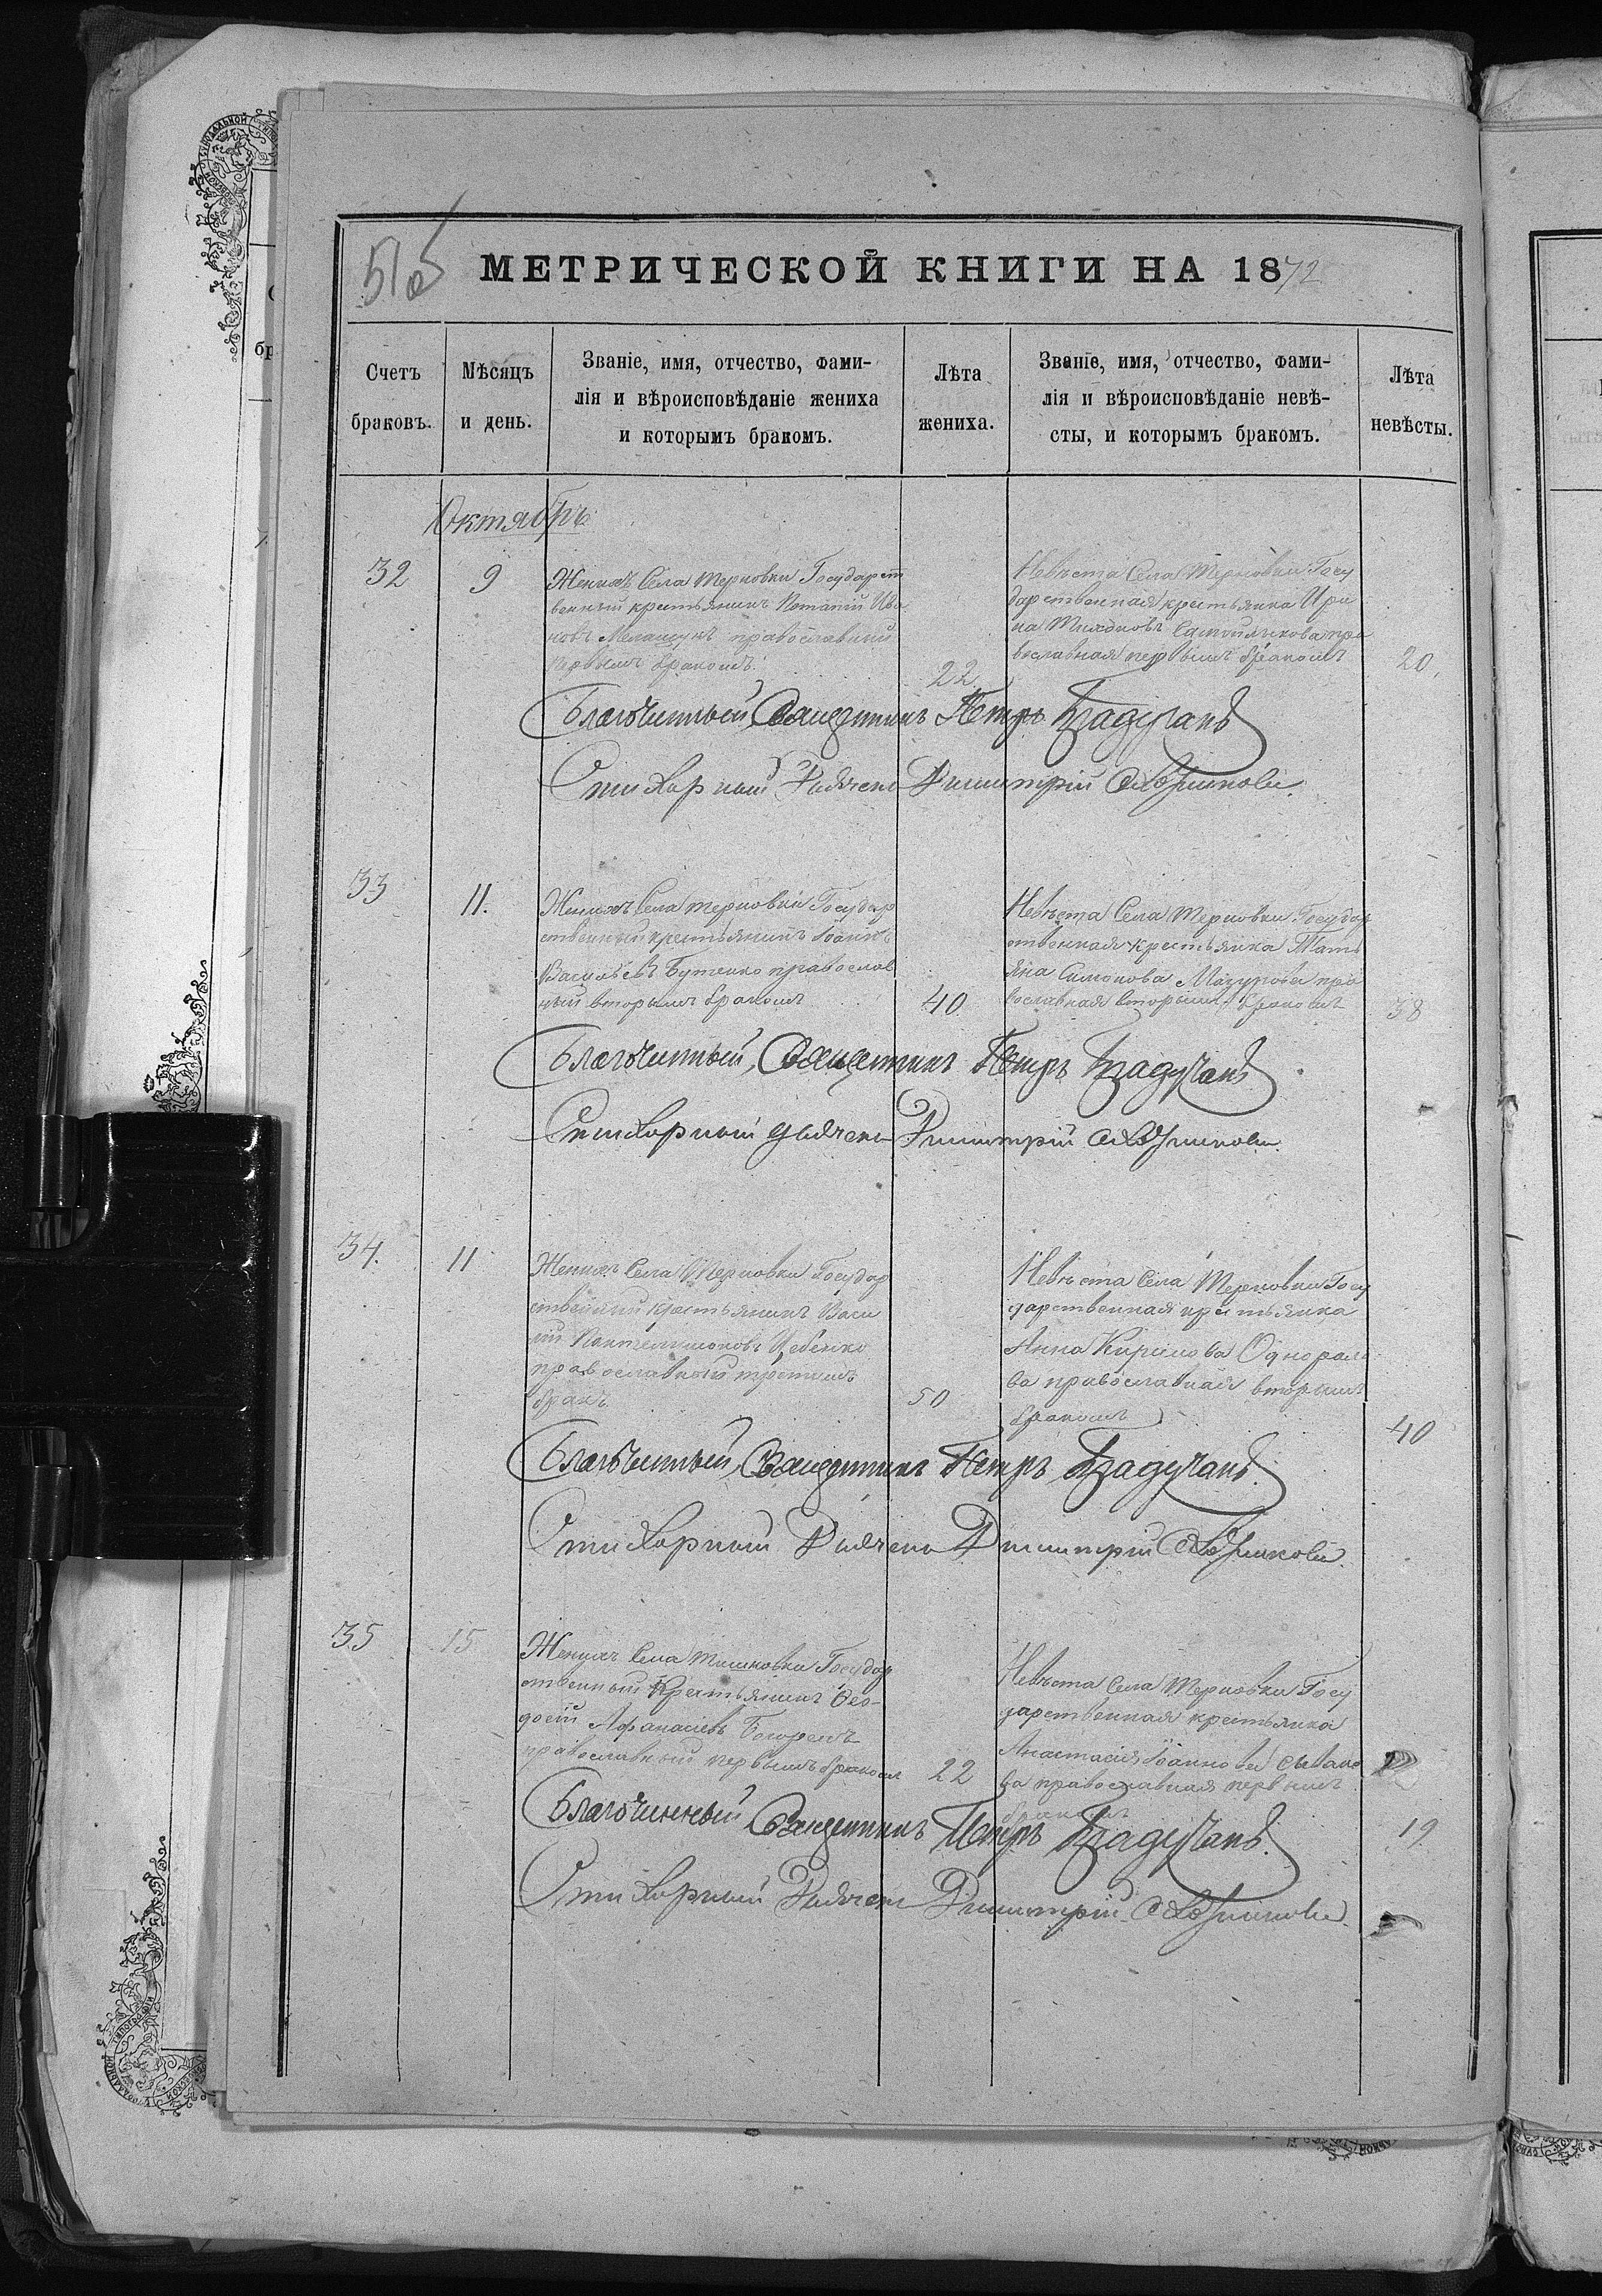 51об
МЕТРИЧЕСКОЙ КНИГИ НА 1872
Счетъ браковъ.
Мѣсяцъ и день.
Званіе, имя, отчество, фами-
лія и вѣроисповѣданіе жениха
и которымъ бракомъ.
Лѣта жениха.
Званіе, имя, отчество, фами-
лія и вѣроисповѣданіе невѣ-
сты, и которымъ бракомъ.
Лѣта невѣсты.
Октябрь
32
9
Женихъ Села Терновки Государст
венный крестьянинъ Потапій Ива
новъ Мелащукъ православный
первымъ бракомъ.
22
Невѣста Села Терновки Госу
дарственная крестьянка Ири
на Самойликова пра
вославная первымъ бракомъ
20
Благочинный, Священникъ Петръ
Стихарный Дьячекъ Димитрій
33
11.
Женихъ Села Терновки Государ
ственный крестьянинъ Іоаннъ
Васильевъ Бутенко православ
ный вторымъ бракомъ
40
Невѣста Села Терновки Государ
ственная крестьянка Тать
яна Симонова Мазурова пра
вославная вторымъ бракомъ
38
Благочинный, Священникъ Петръ
Стихарный дьячекъ Димитрій
34.
11
Женихъ Села Терновки Государ
ственный крестьянинъ Васи
лій Пантелимоновъ
православный третьимъ
бракъ
50
Невѣста Села Терновки Госу
дарственная крестьянка
Анна Кирилова
ва православная вторымъ
бракомъ
40
Благочинный, Священникъ Петръ
Стихарный Дьячекъ Димитрій
35
15
Женихъ Села Тишковки Государ
ственный Крестьянинъ Ѳео-
досій Афанасіевъ
православный первымъ бракомъ
22
Невѣста Села Терновки Госу
дарственная крестьянка
Анастасія Іоаннова
ва православная первымъ
бракомъ
19
Благочинный Священникъ Петръ
Стихарный Дьячекъ Димитрій